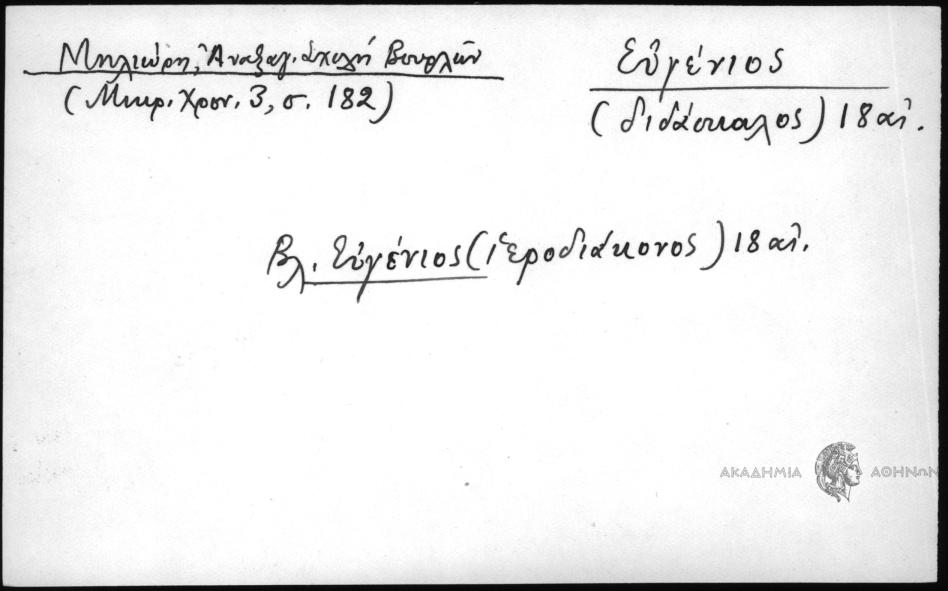 Μηλιώρη, Ἀναξαγ. Σχολή Βουρλῶν
(Μικρ. Χρον. 3, σ. 182)
Εὐγένιος
(διδάσκαλος) 18 αἰ.
Βλ. Εὐγένιος (ἱεροδιάκονος) 18 αἰ.
ΑΚΑΔΗΜΙΑ ΑΘΗΝΩΝ